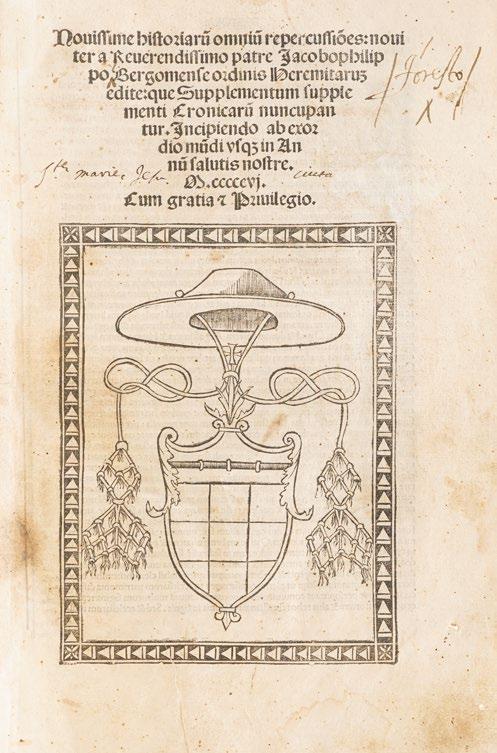 Nouissime historiarũ omniũ repercussiões: noui
ter a Reuerendissimo patre Jacobophilip
po Bergomense ordinis Heremitarum
edite: que Supplementum supple
menti Cronicarũ nuncupan
tur. Incipiendo ab exor
dio mũdi vsqꝫ in An
nũ salutis nostre.
M.cccccvj.
Cum gratia ⁊ Priuilegio.
Foresto
marie